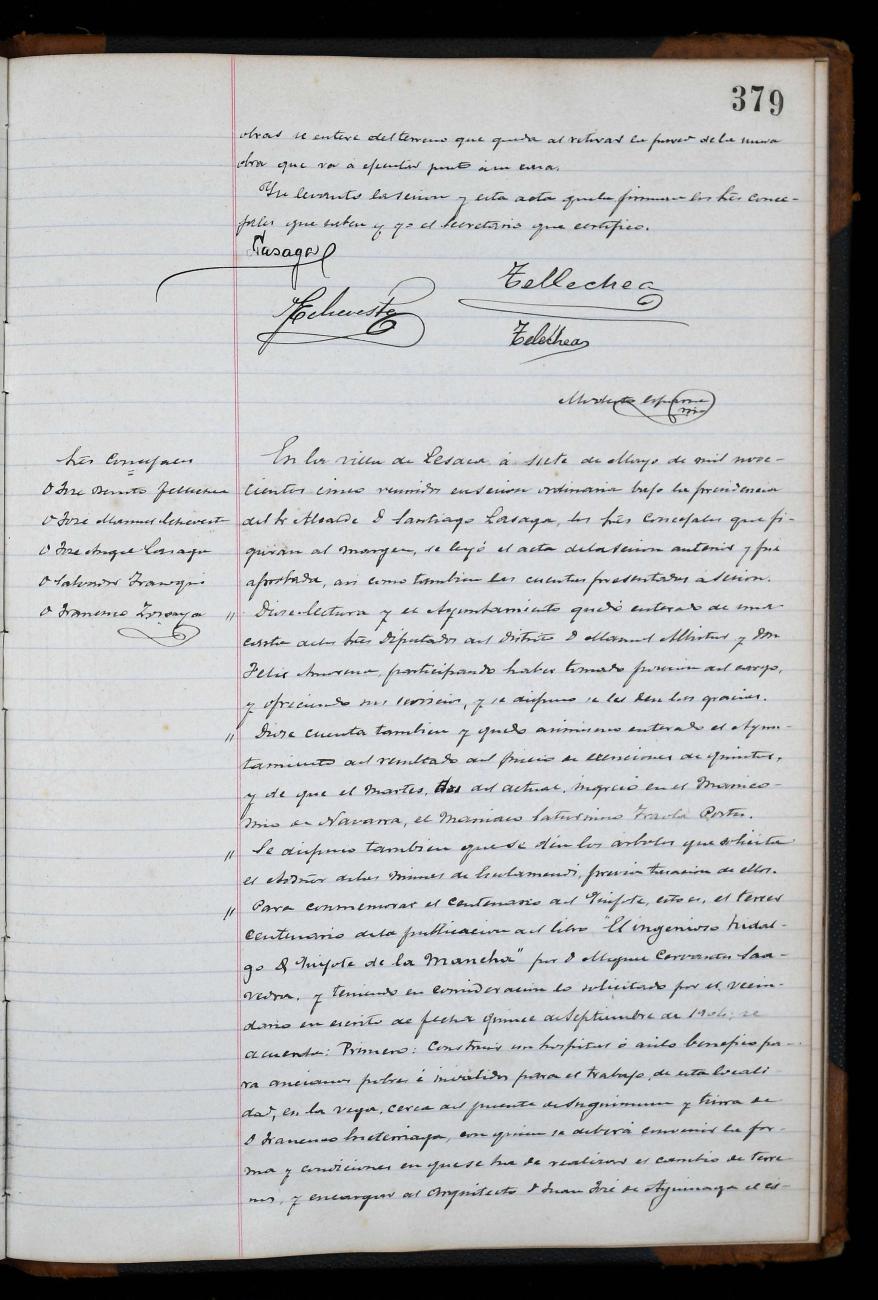 379
obras se entere del terreno que queda al retirar la pared de la nueva
obra que va á ejecutar junto á su casa.
Y se levantó la sesion y esta acta que la firman los Sres Conce-
jales que saben y yo el Secretario que certifico.
Lasaga
Tellechea
Echeveste
Telechea
Modesto
Sres Concejales
D José Benito Tellechea
D José Manuel Echeveste
D José Angel Lasaga
D Salvador Iranegui
D Francisco
En la villa de Lesaca á siete de Mayo de mil nove-
cientos cinco reunidos en sesion ordinaria bajo la presidencia
del Sr Alcalde D Santiago Lasaga, los Sres Concejales que fi-
guran al margen, se leyó el acta de la sesion anterior y fué
aprobada, asi como tambien las cuentas presentadas á sesion.
" Diose lectura y el Ayuntamiento quedó enterado de una
carta de los Sres Diputados del distrito D Manuel Albistur y Don
Felix Amorena, participando haber tomado posesion del cargo,
y ofreciendo sus servicios, y se dispuso se les den las gracias.
" Diose cuenta tambien y quedó asimismo enterado el Ayun-
tamiento del resultado del juicio de exenciones de quintos,
y de que el Martes, dos del actual, ingresó en el Manico-
mio de Navarra, el maniaco Saturnino Portu.
" Se dispuso tambien que se dén los árboles que solicita
el Asdñor de las minas de previa tasacion de ellos.
" Para conmemorar el centenario del Quijote, esto es, el tercer
centenario de la publicacion del libro "El ingenioso hidal-
go D Quijote de la Mancha" por D Miguel Cervantes Saa-
vedra, y teniendo en consideracion lo solicitado por el vecin-
dario en escrito de fecha quince de Septiembre de 1904; se
acuerda: Primero: Construir un hospital ó asilo benefico pa-
ra ancianos pobres é invalidos para el trabajo, de esta locali-
dad, en la vega, cerca del puente de y tierra de
D Francisco con quien se deberá convenir la for-
ma y condiciones en que se ha de realizar el cambio de terre-
nos, y encargar al Arquitecto D Juan José de Aguinaga el es-